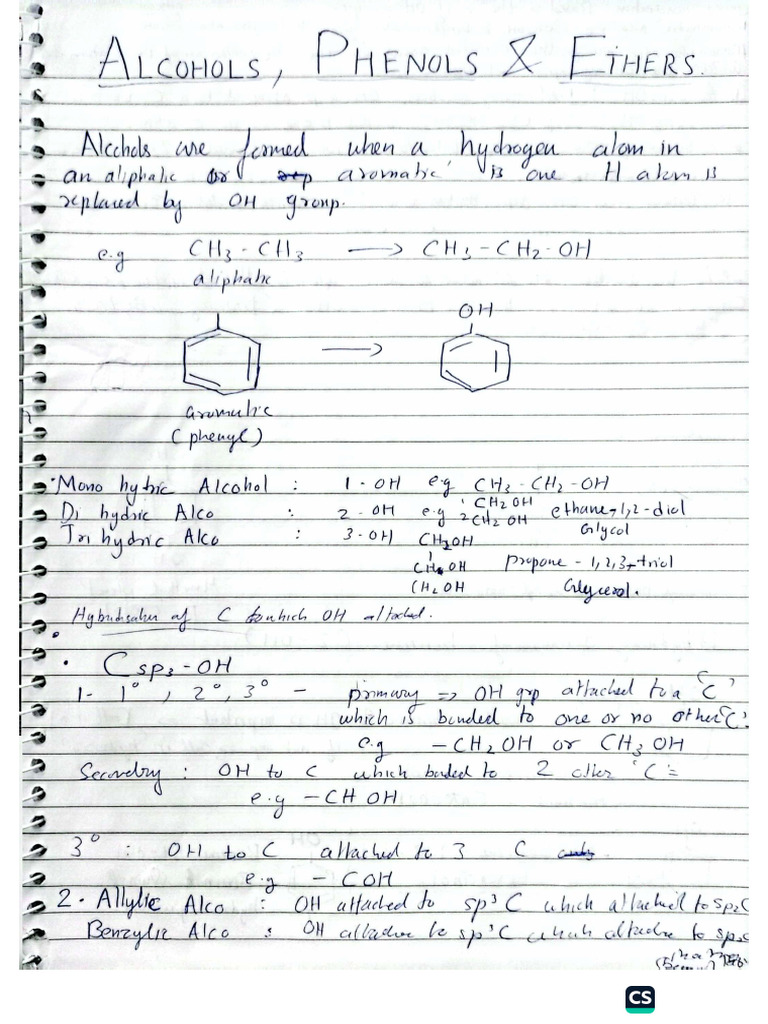 ALCOHOLS, PHENOLS & ETHERS.
Alcohols are formed when a hydrogen atom in
an aliphatic or aromatic is one H atom is
replaced by OH group.
e.g CH3-CH3 → CH3-CH2-OH
aliphatic
OH
→
aromatic
(phenyl)
• Mono hybric Alcohol : 1-OH e.g CH3-CH2-OH
Di hydric Alco : 2-OH e.g 1CH2OH ethane-1,2-diol
2CH2OH Glycol
Tri hydric Alco : 3-OH CH2OH
CHOH propane-1,2,3-triol
CH2OH Glycerol.
Hybridisation of C to which OH attached.
• Csp3-OH
1- 1°, 2°, 3° - primary => OH grp attached to a 'C'
which is bonded to one or no other 'C'.
e.g -CH2OH or CH3OH
Secondry : OH to C which bonded to 2 other 'C'
e.g -CHOH
3° : OH to C attached to 3 C
e.g -COH
2. Allylic Alco : OH attached to sp3 C which attached to sp2C
Benzylic Alco : OH attache to sp3C which attache to sp2C
CS